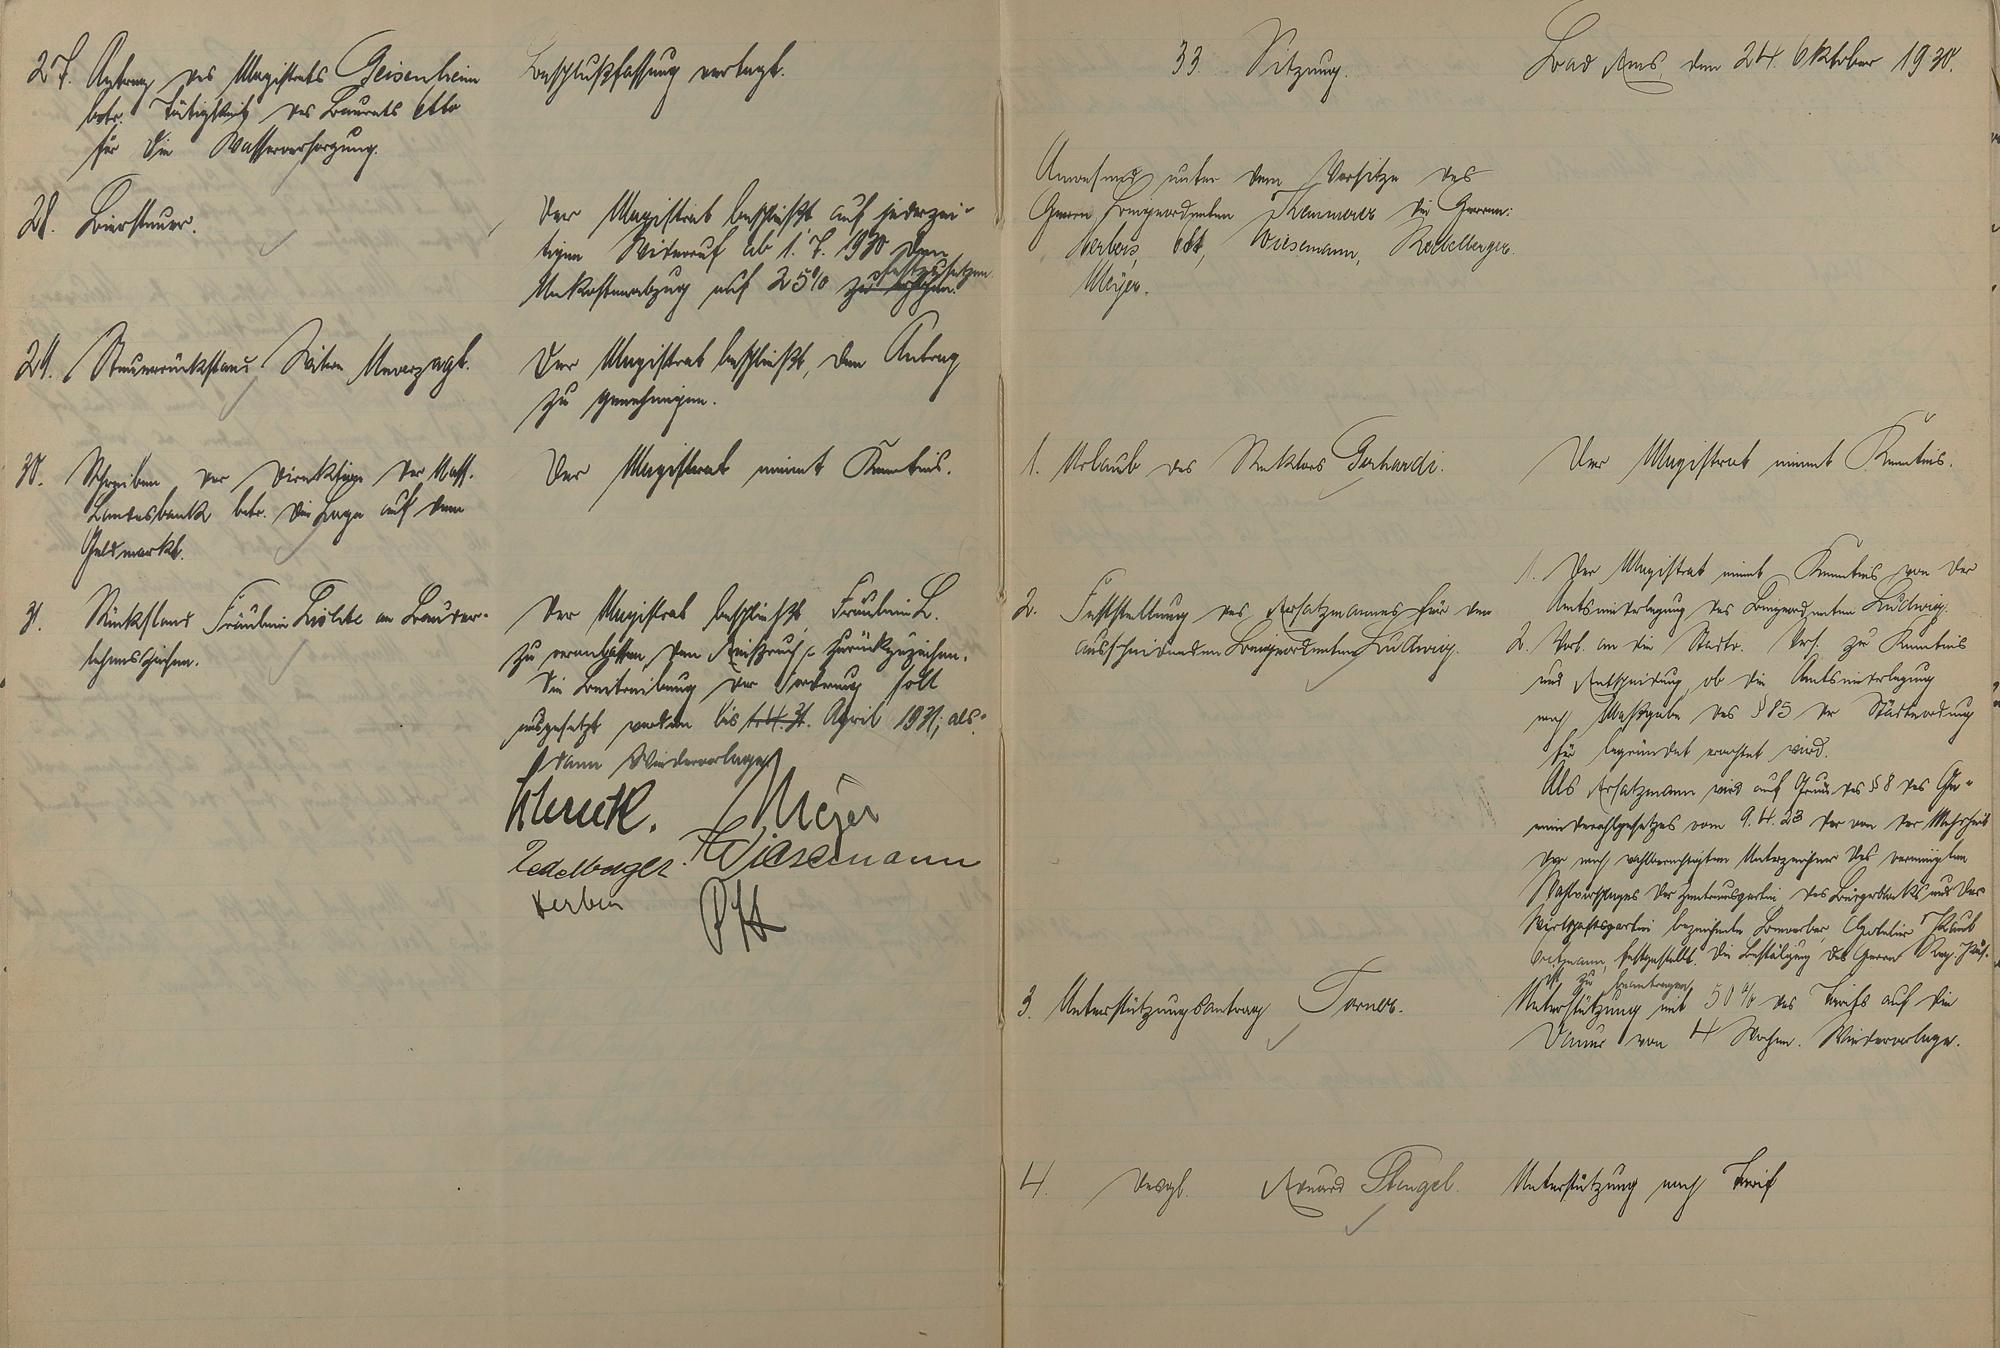 27. Antrag des Magistrats Geisenheim
betr. Tätigkeit des Baurats Otto
für die Wasserversorgung.
Beschlußfassung vertagt.
28. Biersteuer.
Der Magistrat beschließt auf jederzei-
tigen Widerruf ab 1.7.1930 den
Unkostenabzug auf 25% zu
festzusetzen.
29. Steuerrückstand Witwe Unverzagt.
Der Magistrat beschließt, den Antrag
zu genehmigen.
30. Schreiben der Direktion der Nass.
Landesbank betr. die Lage auf dem
Geldmarkt.
Der Magistrat nimmt Kenntnis.
31. Rückstand Fräulein an Baudar-
lehenszinsen.
Der Magistrat beschließt Fräulein L.
zu veranlassen, den Einspruch zurückzuziehen.
Die Beitreibung der Forderung soll
ausgesetzt werden bis April 1931, als-
dann Wiedervorlage.
Meyer
Redelberger Wiesemann
Herber
Ott
33. Sitzung.
Bad Ems, den 24. Oktober 1930.
Anwesend unter dem Vorsitze des
Herrn Beigeordneten Kemmerer die Herren:
Herber, Ott, Wiesemann, Redelberger.
Meyer.
1. Urlaub des Rektors Gerhardi.
Der Magistrat nimmt Kenntnis.
2. Feststellung des Ersatzmannes für den
ausscheidenden Beigeordneten Ludwig.
1. Der Magistrat nimmt Kenntnis von der
Amtsniederlegung des Beigeordneten Ludwig.
2. Vorl. an die Stadtv. Vers. zu Kenntnis
und Entscheidung, ob die Amtsniederlegung
nach Maßgabe des § 85 der Städteordnung
für begründet erachtet wird.
Als Ersatzmann wird auf Grund des § 8 des Ge-
meindewahlgesetzes vom 9.4.23 der von der Mehrheit
der noch wahlberechtigten Unterzeichner des vereinigten
Wahlvorschlages der Zentrumspartei, des Bürgerblocks und der
Wirtschaftspartei bezeichnete Bewerber, Hotelier
festgestellt. Die Bestätigung des Herrn Reg. Präs.
ist zu beantragen.
3. Unterstützungsantrag
Unterstützung mit 50% des Tarifs auf die
Dauer von 4 Wochen. Wiedervorlage.
4. Desgl. Eduard Stengel.
Unterstützung nach Tarif